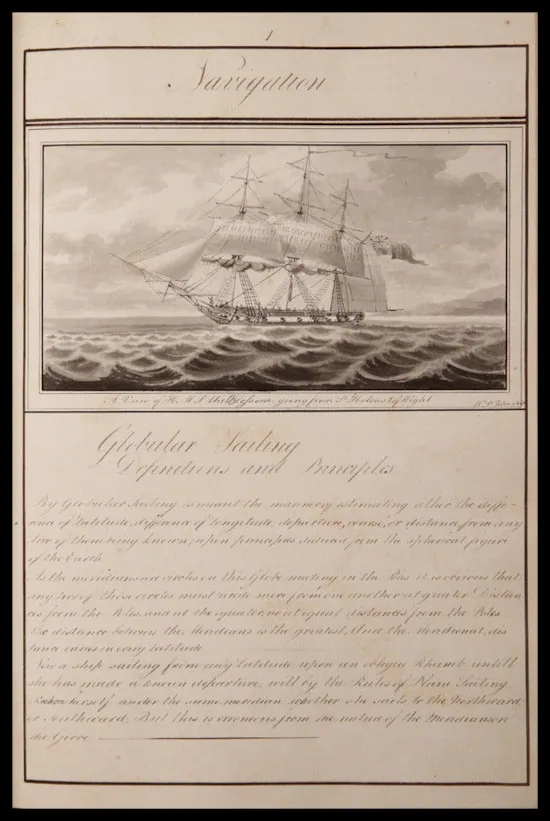 1
Navigation
A View of H. M. S. the Blossom going from St Helens I. of Wight
Globular Sailing
Definitions and Principles
By Globular Sailing is meant the manner of estimating either the diffe-
rence of Latitude, difference of Longitude, departure, course, or distance from any
two of them being known; upon principles deduced from the spherical figure
of the Earth
As the meridians are circles on this Globe meeting in the Poles it is obvious that
any two of these circles must recide more from one another at greater Distan
ces from the Poles, and at the equator, or at equal distances from the Poles
the distance between the Meridians is the greatest, thus the Meridional dis
tance varies in every latitude
Now a ship sailing from any Latitude upon an oblique Rhumb untill
she has made a known departure, will by the Rules of Plane Sailing
Reckon herself under the same meridian whether she sails to the Northward
or Southward. But this is erronious from the nature of the Meridians on
the Globe